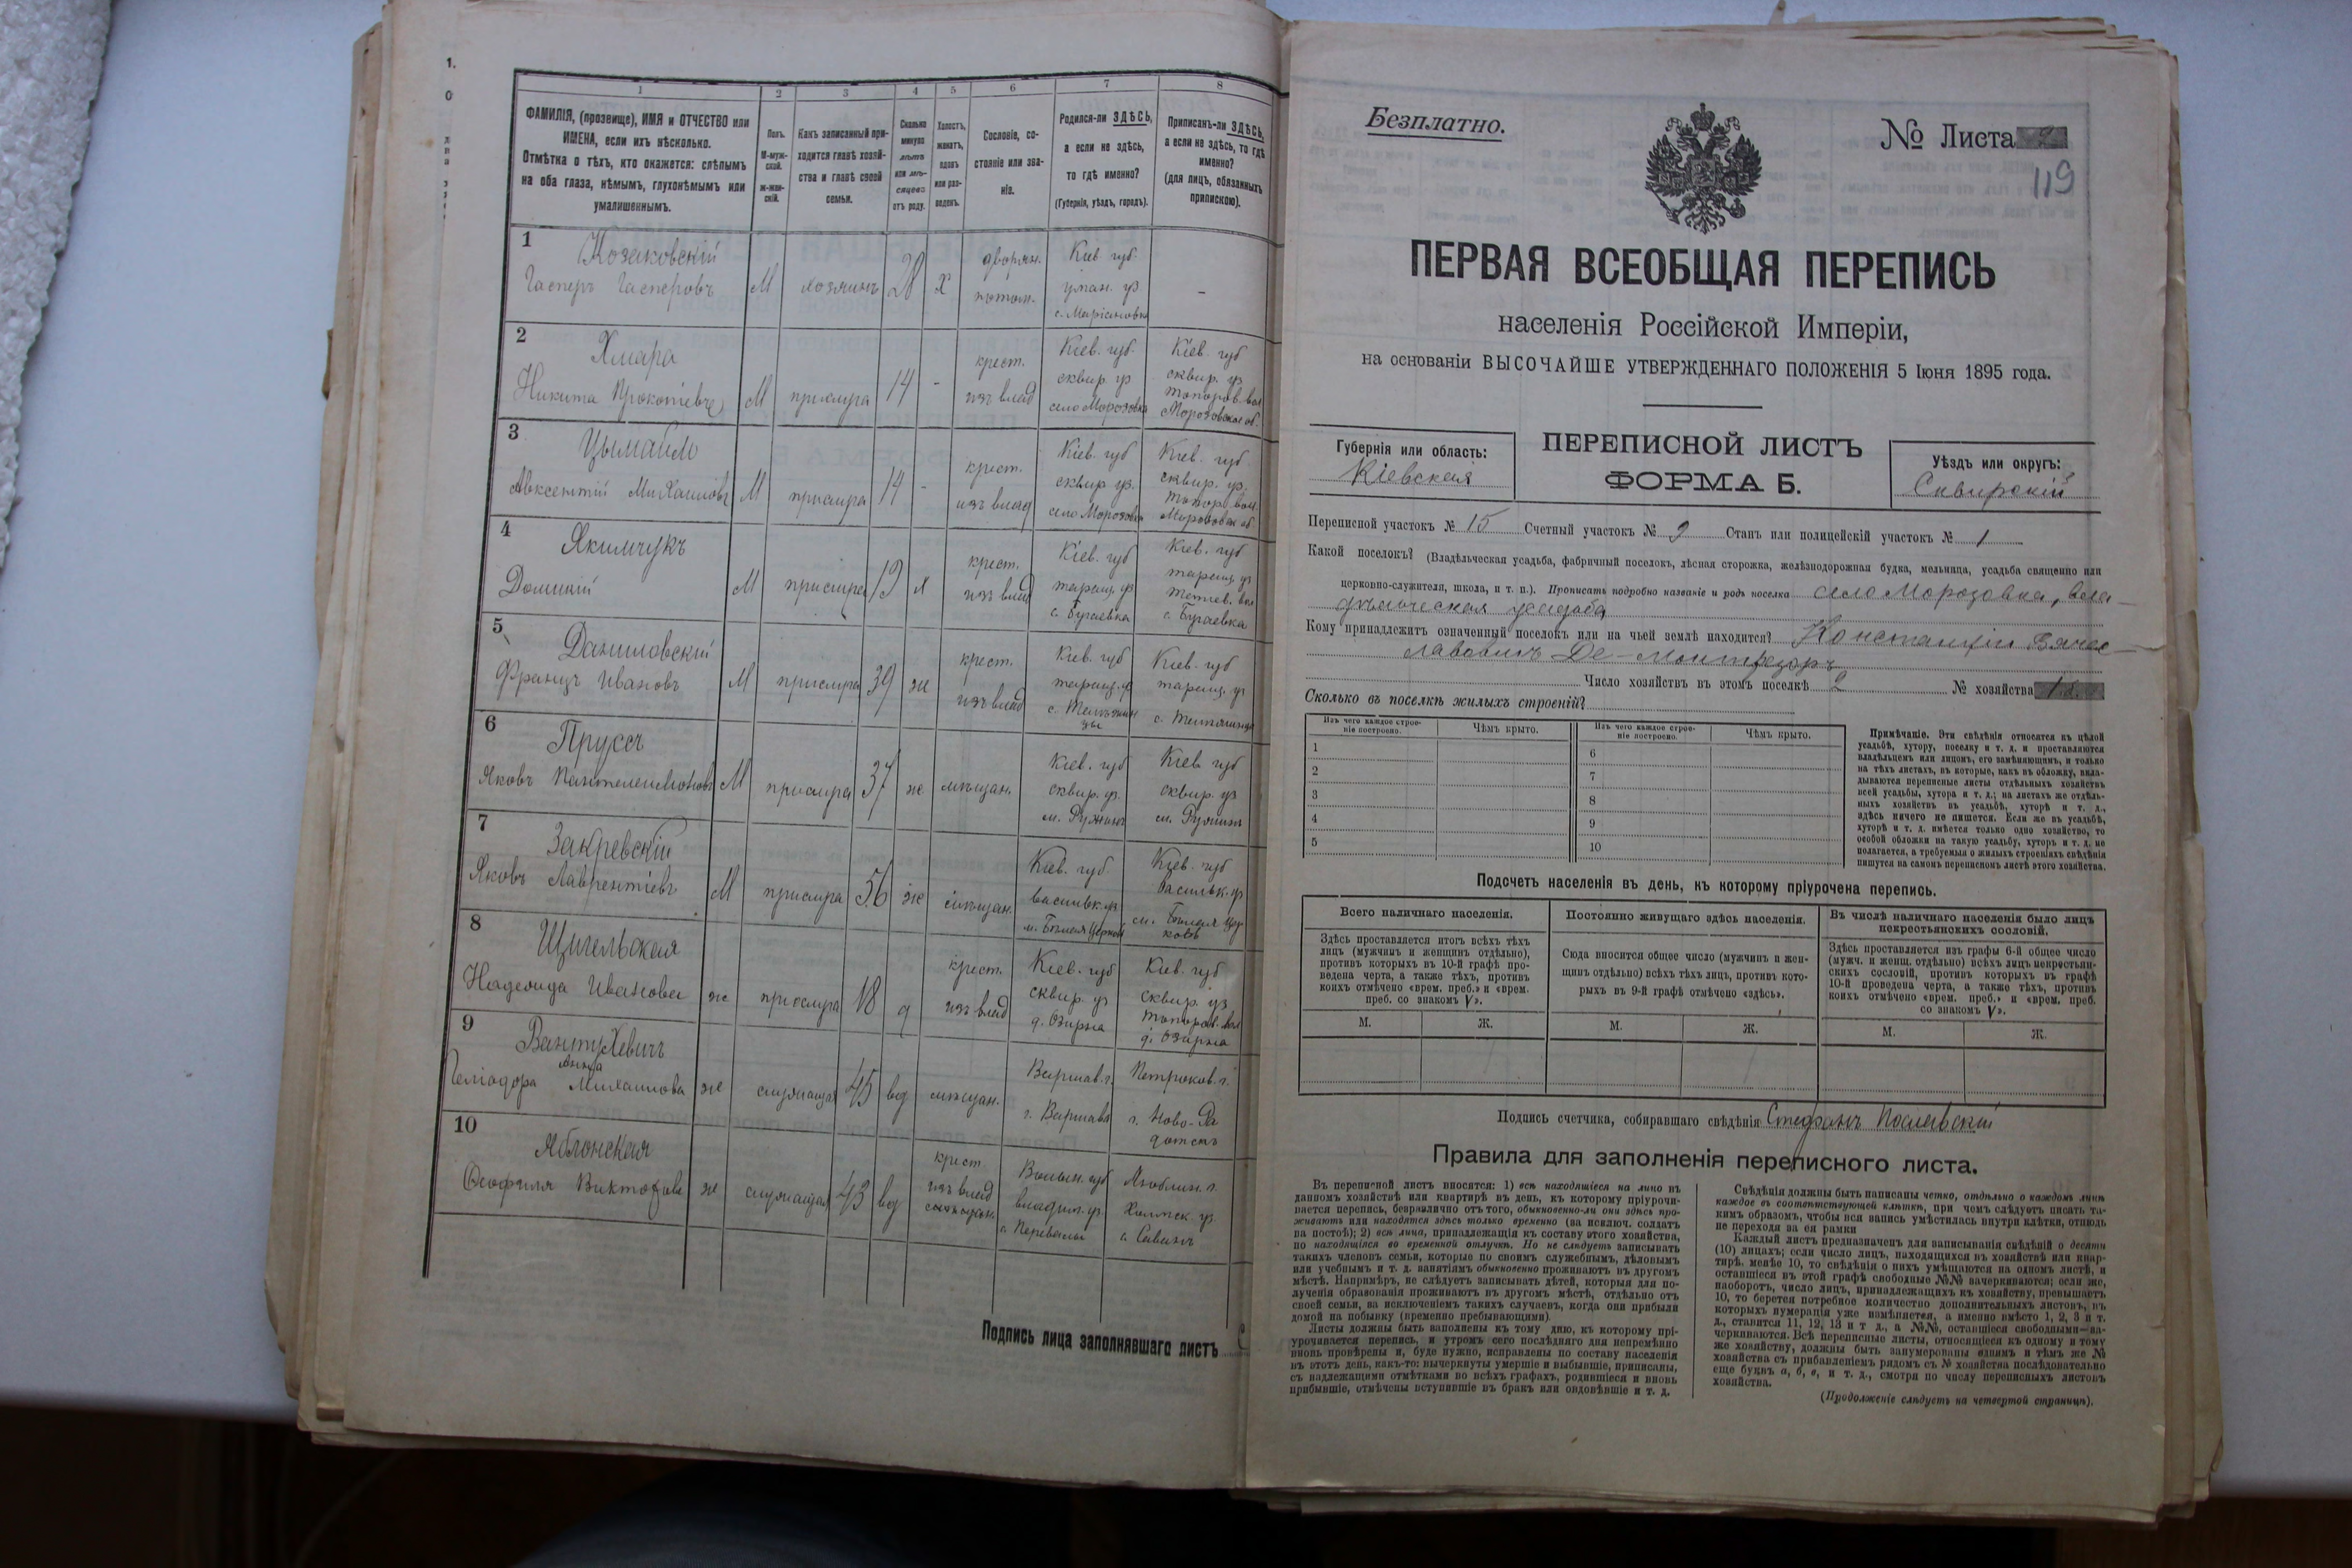 1 2 3 4 5 6 7 8
ФАМИЛІЯ, (прозвище), ИМЯ и ОТЧЕСТВО или
ИМЕНА, если ихъ нѣсколько.
Отмѣтка о тѣхъ, кто окажется: слѣпымъ
на оба глаза, нѣмымъ, глухонѣмымъ или
умалишеннымъ.
Полъ.
М-муж-
ской.
ж-жен-
скій.
Какъ записанный при-
ходится главѣ хозяй-
ства и главѣ своей
семьи.
Сколько
минуло
лѣтъ
или мѣ-
сяцевъ
отъ роду.
Холостъ,
женатъ,
вдовъ
или раз-
веденъ.
Сословіе, со-
стояніе или зва-
ніе.
Родился-ли ЗДѢСЬ,
а если не здѣсь,
то гдѣ именно?
(Губернія, уѣздъ, городъ).
Приписанъ-ли ЗДѢСЬ,
а если не здѣсь, то гдѣ
именно?
(для лицъ, обязанныхъ
припискою).
1
Козаковскій
Гасперъ Гасперовъ
М
хозяинъ
28
х
дворян.
потом.
Кіев. губ.
уман. уз
с. Маріановка
-
2
Хмара
Никита Прокопіевъ
М
прислуга
14
-
крест.
изъ влад
Кіев. губ.
сквир. уз
село Морозовка
Кіев. губ
сквир. уз.
топоров. вол
Морозовское об.
3
Цымбалъ
Авксентій Михаиловъ
М
прислуга
14
-
крест.
изъ влад
Кіев. губ
сквир. уз.
село Морозовка
Кіев. губ.
сквир. уз.
топор. вол.
Морозовск об.
4
Якимчукъ
М
прислуга
19
х
крест.
изъ влад
Кіев. губ
таращ. уз
с. Бугаевка
Кіев. губ
таращ. уз
тетіев. вол
с. Бугаевка
5
Даниловскій
Францъ Ивановъ
М
прислуга
39
ж
крест.
изъ влад
Кіев. губ
таращ. у
Кіев. губ
таращ. уз
6
Пруссъ
Яковъ Пантелеимоновъ
М
прислуга
37
ж
мѣщан.
Кіев. губ
сквир. уз.
м. Ружинъ
Кіев. губ
сквир. уз
м. Ружинъ
7
Закревскій
Яковъ Лаврентіевъ
М
прислуга
56
ж
мѣщан.
Кіев. губ.
васильк. уз
м. Бѣлая Церковь
Кіев. губ
васильк. уз
м. Бѣлая Цер
ковь
8
Щигельская
Надежда Иванова
ж
прислуга
18
д
крест.
изъ влад
Кіев. губ
сквир. уз
д. Озирна
Кіев. губ
сквир. уз
топоров. вол
д. Озирна
9
Вантухевичъ
Анна
Геліодора Михаилова
ж
служащая
45
вд
мѣщан.
Варшав. г.
г. Варшава
Петроков. г.
г. Ново-Ра
домскъ
10
Яблонская
Ѳеофиля Викторова
ж
служащая
43
вд
крест
изъ влад
Волын. губ
владим. уз.
с. Перевалы
Люблин. г.
Холмск. уз.
с. Савинъ
Подпись лица заполнявшаго листъ
Безплатно.
№ Листа
119
ПЕРВАЯ ВСЕОБЩАЯ ПЕРЕПИСЬ
населенія Россійской Имперіи,
на основаніи ВЫСОЧАЙШЕ УТВЕРЖДЕННАГО ПОЛОЖЕНІЯ 5 Іюня 1895 года.
Губернія или область:
Кіевская
ПЕРЕПИСНОЙ ЛИСТЪ
ФОРМА Б.
Уѣздъ или округъ:
Сквирскій
Переписной участокъ № 15 Счетный участокъ № 9 Станъ или полицейскій участокъ № 1
Какой поселокъ? (Владѣльческая усадьба, фабричный поселокъ, лѣсная сторожка, желѣзнодорожная будка, мельница, усадьба священно или
церковно-служителя, школа, и т. п.). Прописать подробно названіе и родъ поселка село Морозовка, вла-
дѣльческая усадьба
Кому принадлежитъ означенный поселокъ или на чьей землѣ находится? Констанціи Вячес-
лавовнъ Де-Монтрезоръ
Число хозяйствъ въ этомъ поселкѣ 2 № хозяйства
Сколько въ поселкѣ жилыхъ строеній?
Изъ чего каждое строе-
ніе построено.
Чѣмъ крыто.
Изъ чего каждое строе-
ніе построено.
Чѣмъ крыто.
1 6
2 7
3 8
4 9
5 10
Примѣчаніе. Эти свѣдѣнія относятся къ цѣлой
усадьбѣ, хутору, поселку и т. д. и проставляются
владѣльцемъ или лицомъ, его замѣняющимъ, и только
на тѣхъ листахъ, въ которые, какъ въ обложку, вкла-
дываются переписные листы отдѣльныхъ хозяйствъ
всей усадьбы, хутора и т. д.; на листахъ же отдѣль-
ныхъ хозяйствъ въ усадьбѣ, хуторѣ и т. д.,
здѣсь ничего не пишется. Если же въ усадьбѣ,
хуторѣ и т. д. имѣется только одно хозяйство, то
особой обложки на такую усадьбу, хуторъ и т. д. не
полагается, а требуемыя о жилыхъ строеніяхъ свѣдѣнія
пишутся на самомъ переписномъ листѣ этого хозяйства.
Подсчетъ населенія въ день, къ которому пріурочена перепись.
Всего наличнаго населенія.
Здѣсь проставляется итогъ всѣхъ тѣхъ
лицъ (мужчинъ и женщинъ отдѣльно),
противъ которыхъ въ 10-й графѣ про-
ведена черта, а также тѣхъ, противъ
коихъ отмѣчено «врем. преб.» и «врем.
преб. со знакомъ V».
М. Ж.
Постоянно живущаго здѣсь населенія.
Сюда вносится общее число (мужчинъ и жен-
щинъ отдѣльно) всѣхъ тѣхъ лицъ, противъ кото-
рыхъ въ 9-й графѣ отмѣчено «здѣсь».
М. Ж.
Въ числѣ наличнаго населенія было лицъ
некрестьянскихъ сословій.
Здѣсь проставляется изъ графы 6-й общее число
(мужч. и женщ. отдѣльно) всѣхъ лицъ некрестьян-
скихъ сословій, противъ которыхъ въ графѣ
10-й проведена черта, а также тѣхъ, противъ
коихъ отмѣчено «врем. преб.» и «врем. преб.
со знакомъ V».
М. Ж.
Подпись счетчика, собиравшаго свѣдѣнія Стефанъ
Правила для заполненія переписного листа.
Въ переписной листъ вносятся: 1) всѣ находящіеся на лицо въ
данномъ хозяйствѣ или квартирѣ въ день, къ которому пріурочи-
вается перепись, безразлично отъ того, обыкновенно-ли они здѣсь про-
живаютъ или находятся здѣсь только временно (за исключ. солдатъ
на постоѣ); 2) всѣ лица, принадлежащія къ составу этого хозяйства,
но находящіяся во временной отлучкѣ. Но не слѣдуетъ записывать
такихъ членовъ семьи, которые по своимъ служебнымъ, дѣловымъ
или учебнымъ и т. д. занятіямъ обыкновенно проживаютъ въ другомъ
мѣстѣ. Напримѣръ, не слѣдуетъ записывать дѣтей, которыя для по-
лученія образованія проживаютъ въ другомъ мѣстѣ, отдѣльно отъ
своей семьи, за исключеніемъ такихъ случаевъ, когда они прибыли
домой на побывку (временно пребывающими).
Листы должны быть заполнены къ тому дню, къ которому прі-
урочивается перепись, и утромъ сего послѣдняго дня непремѣнно
вновь провѣрены и, буде нужно, исправлены по составу населенія
въ этотъ день, какъ-то: вычеркнуты умершіе и выбывшіе, приписаны,
съ надлежащими отмѣтками во всѣхъ графахъ, родившіеся и вновь
прибывшіе, отмѣчены вступившіе въ бракъ или овдовѣвшіе и т. д.
Свѣдѣнія должны быть написаны четко, отдѣльно о каждомъ лицѣ
каждое въ соотвѣтствующей клѣткѣ, при чемъ слѣдуетъ писать та-
кимъ образомъ, чтобы вся запись умѣстилась внутри клѣтки, отнюдь
не переходя за ея рамки
Каждый листъ предназначенъ для записыванія свѣдѣній о десяти
(10) лицахъ; если число лицъ, находящихся въ хозяйствѣ или квар-
тирѣ, менѣе 10, то свѣдѣнія о нихъ умѣщаются на одномъ листѣ, и
оставшіеся въ этой графѣ свободные №№ зачеркиваются; если же,
наоборотъ, число лицъ, принадлежащихъ къ хозяйству, превышаетъ
10, то берется потребное количество дополнительныхъ листовъ, въ
которыхъ нумерація уже измѣняется, а именно вмѣсто 1, 2, 3 и т.
д., ставится 11, 12, 13 и т д., а №№, оставшіеся свободными—за-
черкиваются. Всѣ переписные листы, относящіеся къ одному и тому
же хозяйству, должны быть занумерованы однимъ и тѣмъ же №
хозяйства съ прибавленіемъ рядомъ съ № хозяйства послѣдовательно
еще буквъ а, б, в, и т. д., смотря по числу переписныхъ листовъ
хозяйства.
(Продолженіе слѣдуетъ на четвертой страницѣ).